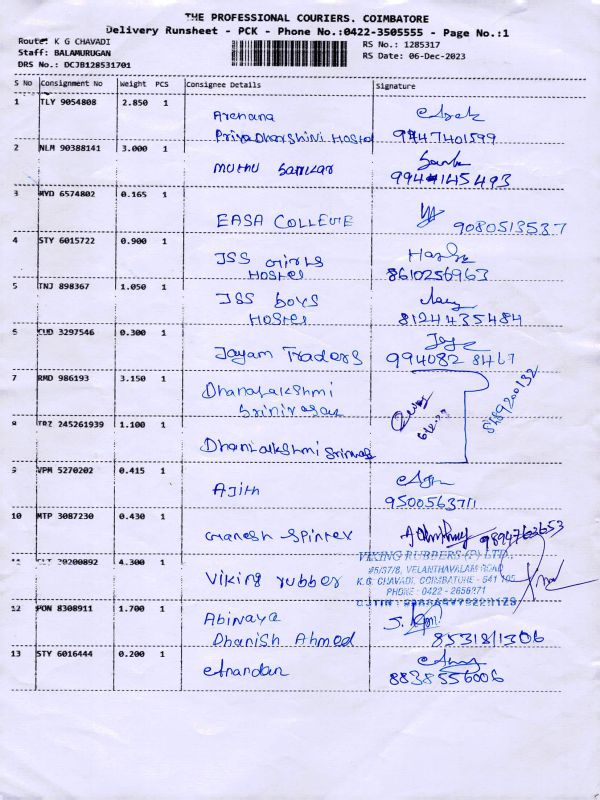 THE PROFESSIONAL COURIERS. COIMBATORE
Delivery Runsheet - PCK - Phone No.:0422-3505555 - Page No.:1
Route: K G CHAVADI
Staff: BALAMURUGAN
DRS No.: DCJB128531701
RS No.: 1285317
RS Date: 06-Dec-2023
S No Consignment No Weight PCS Consignee Details Signature
1 TLY 9054808 2.850 1 Archana
Priya Dharshini Hostel 9947401599
2 NLM 90388141 3.000 1 Muthu Sankar
9944145493
3 MVD 6574802 0.165 1 EASA COLLEGE 9080513537
4 STY 6015722 0.900 1 JSS Girls
Hostel 8610256963
5 TNJ 898367 1.050 1 JSS boys
Hostel 8124435484
6 CUD 3297546 0.300 1 Jayam Traders 994082 8467
7 RMD 986193 3.150 1 Dhanalakshmi
Srinivasan
8 TRZ 245261939 1.100 1 Dhanalakshmi Srinivas
9 VPM 5270202 0.415 1 Ajith
9500563711
10 MTP 3087230 0.430 1 Ganesh Spintex 9894763653
4.300 1 Viking rubber
VIKING RUBBERS (P) LTD.,
VELANTHAVALAM ROAD
K.G. CHAVADI, COIMBATORE - 641 105
PHONE : 0422 - 2656271
12 PON 8308911 1.700 1 Abinaya
Dhanish Ahmed
13 STY 6016444 0.200 1 Anandan
8838556006